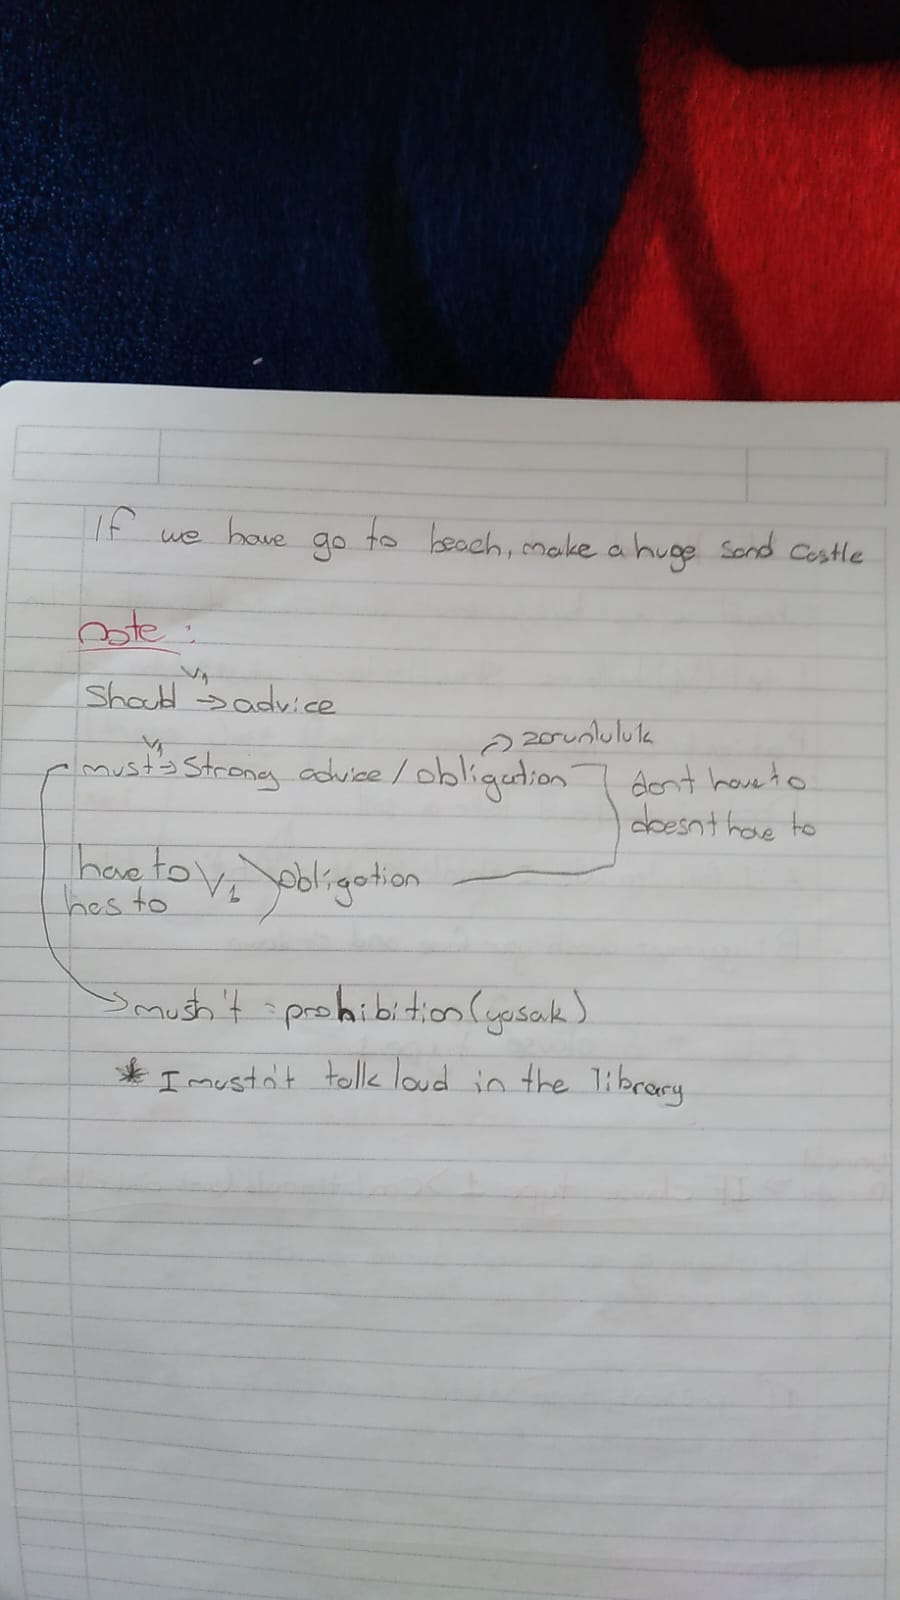 If we have go to beach, make a huge sand castle
note :
V1
Should → advice
zorunluluk
V1
must → Strong advice / obligation
don't have to
doesn't have to
have to V1 obligation
has to
→ mustn't = prohibition (yasak)
* I mustn't talk loud in the library